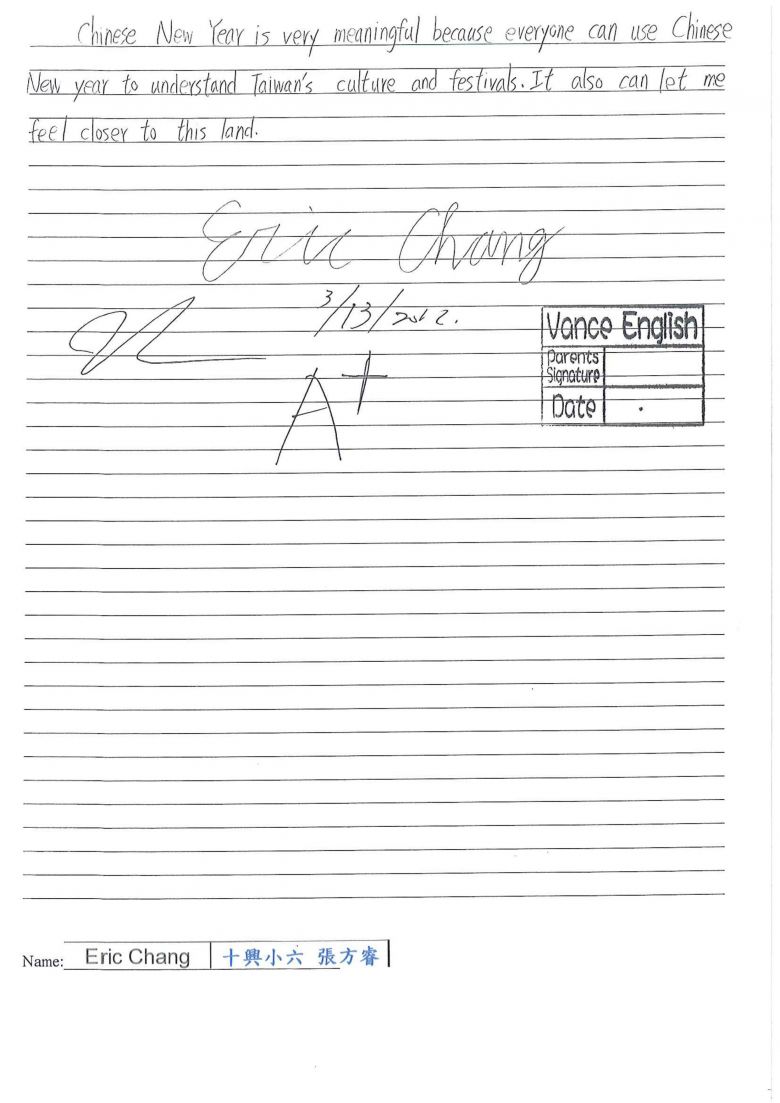 Chinese New Year is very meaningful because everyone can use Chinese
New year to understand Taiwan's culture and festivals. It also can let me
feel closer to this land.
Eric Chang
3/13/2012.
A+
Vance English
Parents
Signature
Date
Name: Eric Chang 十興小六 張方睿